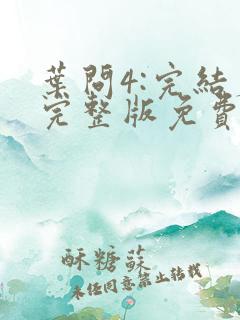 葉問4:完結
完整版免費
酥糖蘇
未经同意禁止转载